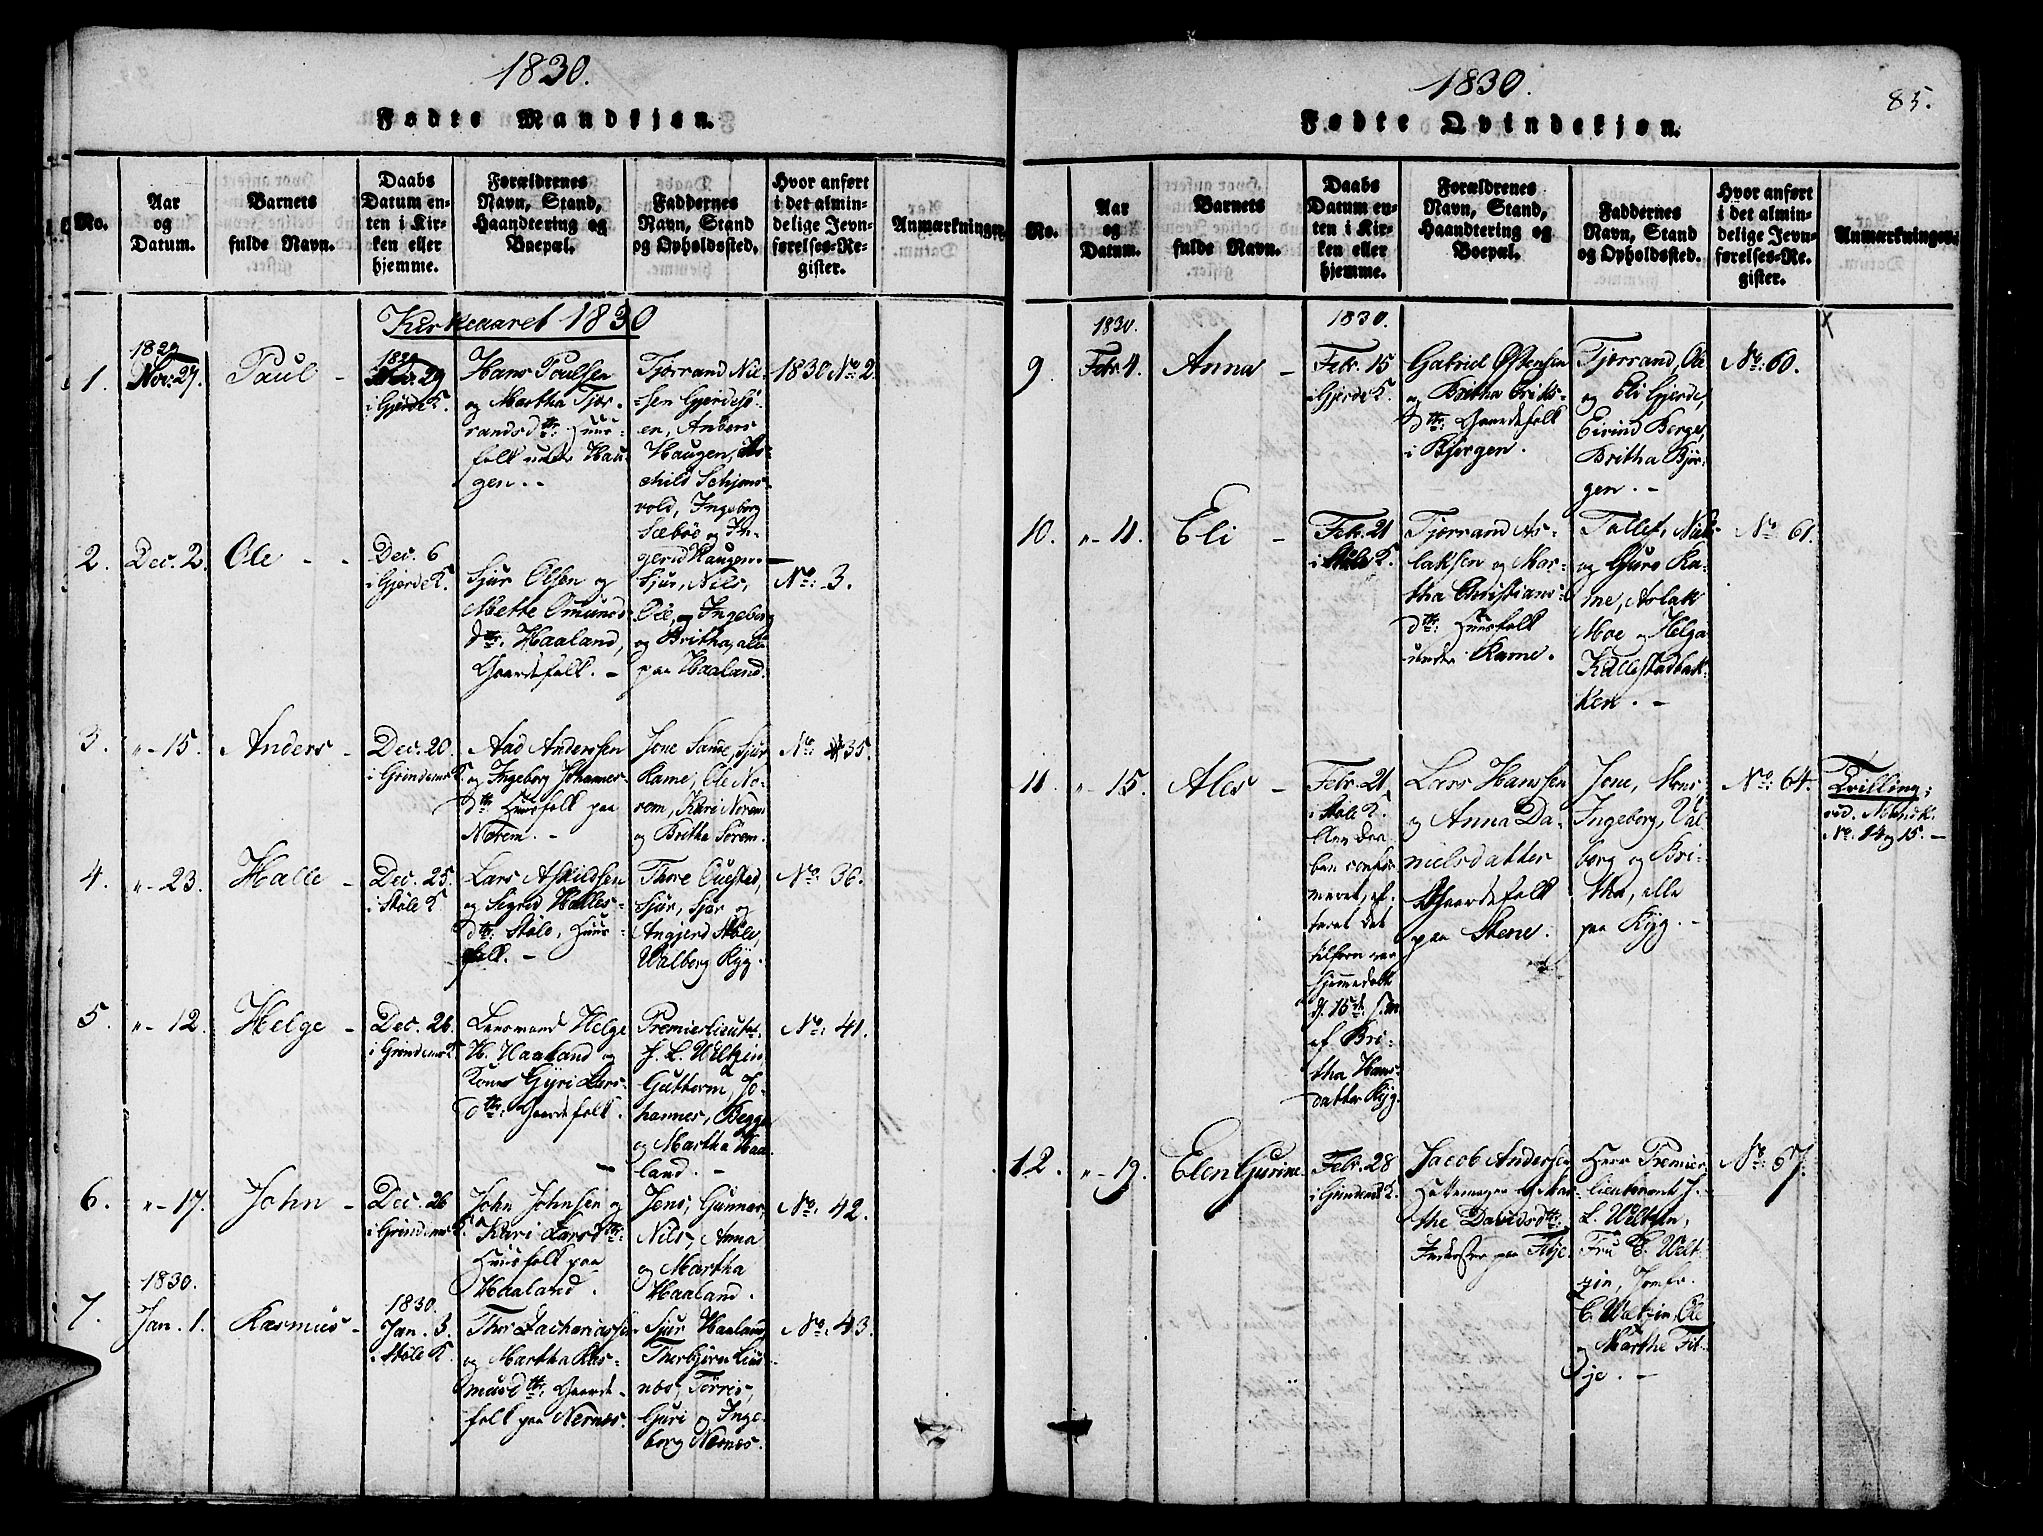 1830.
Fødte Mandkjøn.
No.
Aar
og
Datum.
Barnets
fulde Navn.
Daabs
Datum en-
ten i Kir-
ken eller
hjemme.
Forældrenes
Navn, Stand,
Haandtering og
Boepæl.
Faddernes
Navn, Stand
og Opholdssted.
Hvor anført
i det almin-
delige Jevn-
førelses-Re-
gister.
Anmarkninger.
Kirkeaaret 1830
1.
1829
Nov. 27.
Paul -
1829
Nov. 29
i Gjerde K.
Hans Poulsen
og Martha Tjør-
randsdtr. Huus-
folk under Hau-
gen. -
Tjørrand Nil-
sen Gjerdesjö-
en, Anders
Haugen, As-
child Schjons-
vold, Ingeborg
Sæböe og In-
gerid Haugen -
1830 No. 2.
2.
Dec. 2.
Ole - -
Dec. 6
i Gjerde K.
Sjur Olsen og
Mette Omunds-
dtr. Haaland,
Gaardsfolk. -
Sjur, Nils,
Ole, og Ingeborg
og Britha, alle
paa Haaland.
No. 3.
3.
"-15.
Anders -
Dec. 20.
i Grindems K.
Aad Anderssen
og Ingeborg Johannes-
dtr. Huusfolk paa
Norem. -
Jone Sande, Sjur
Kame, Ole No-
rem, Kari Norem
og Britha Sørem.
No. 35.
4.
"-23.
Halle -
Dec. 25.
i Støle K.
Lars Askildsen
og Sigrid Halles-
dtr. Støle, Huus-
folk. -
Thore Ouested,
Sjur, Sjur og
Angjerd Støle,
Walborg Kyg.
No. 36.
5.
"-12.
Helge -
Dec. 26.
i Grindems K.
Lensmand Helge
H. Haaland og
Kone Gyri Lars-
dtr. Gaardsfolk.
Premierlieutn.
J. L. Weltzin
Guttorm, Jo-
hannes, Begge
og Martha Haa-
land. -
No. 41.
6.
"-17.
John -
Dec. 26
i Grindems K.
John Johnsen og
Kari Larsdtr.
Huusfolk paa
Haaland.
Jens, Gunnar,
Nils, Anna
og Martha
Haaland.
No. 42.
7.
1830.
Jan. 1.
Rasmus -
1830.
Jan. 3.
i Støle K.
Thor Zachariassen
og Martha Ras-
musdtr. Gaards-
folk paa Nernes.
Sjur Haaland,
Thorbjørn Lius-
nbo, Tørris,
Guri og Inge-
borg Nernes.
No. 43.
1830.
85.
Fødte Qvindekjøn.
No.
Aar
og
Datum.
Barnets
fulde Navn.
Daabs
Datum en-
ten i Kir-
ken eller
hjemme.
Forældrenes
Navn, Stand,
Haandtering og
Boepæl.
Faddernes
Navn, Stand
og Opholdssted.
Hvor anført
i det almin-
delige Jevn-
førelses-Re-
gister.
Anmarkninger.
9.
1830.
Febr. 4.
Anna -
1830.
Febr. 15
i Gjerde K.
Gabriel Østensen
og Britha Eriks-
dtr. Gaardsfolk
i Bjørgen.
Tjørrand, Ole
og Eli Gjerde,
Eivind Berge,
Britha Bjør-
gen. -
No. 60.
X
10.
"-11.
Eli -
Febr. 21
i Støle K.
Tjørrand As-
laksen og Mar-
tha Christians-
dtr. Huusfolk
under Kame.
Tollef, Niels
og Guro Ka-
me, Aslak
Moe og Helga
Kallestadbak-
ken. -
No. 61.
11.
"-15.
Ales -
Febr. 21
i Støle K.
blev Daa-
ben confir-
meret, ef-
terat det
tilforn var
hjemmedøbt
d. 15de s. M.
af Bri-
tha Hans-
datter Kyg.
Lars Hanssen
og Anna Da-
nielsdatter
Gaardsfolk
paa Stene.
Jone,
Ingeborg, Val-
borg og Bri-
tha, alle
paa Kyg. -
No. 64.
Trilling,
vid. Mandk.
No. 14 og 15. -
12.
"-19.
Elen Gurine
Febr. 28
i Grindems K.
Jacob Andersen
Hattemager og Mar-
the Davidsdtr.
Inderster paa Fitje.
Herr Premier-
lieutenant J.
L. Weltzin,
Fru E. Welt-
zin, Jomfr.
C. Weltzin, Ole
og Marthe Fit-
je. -
No. 67.